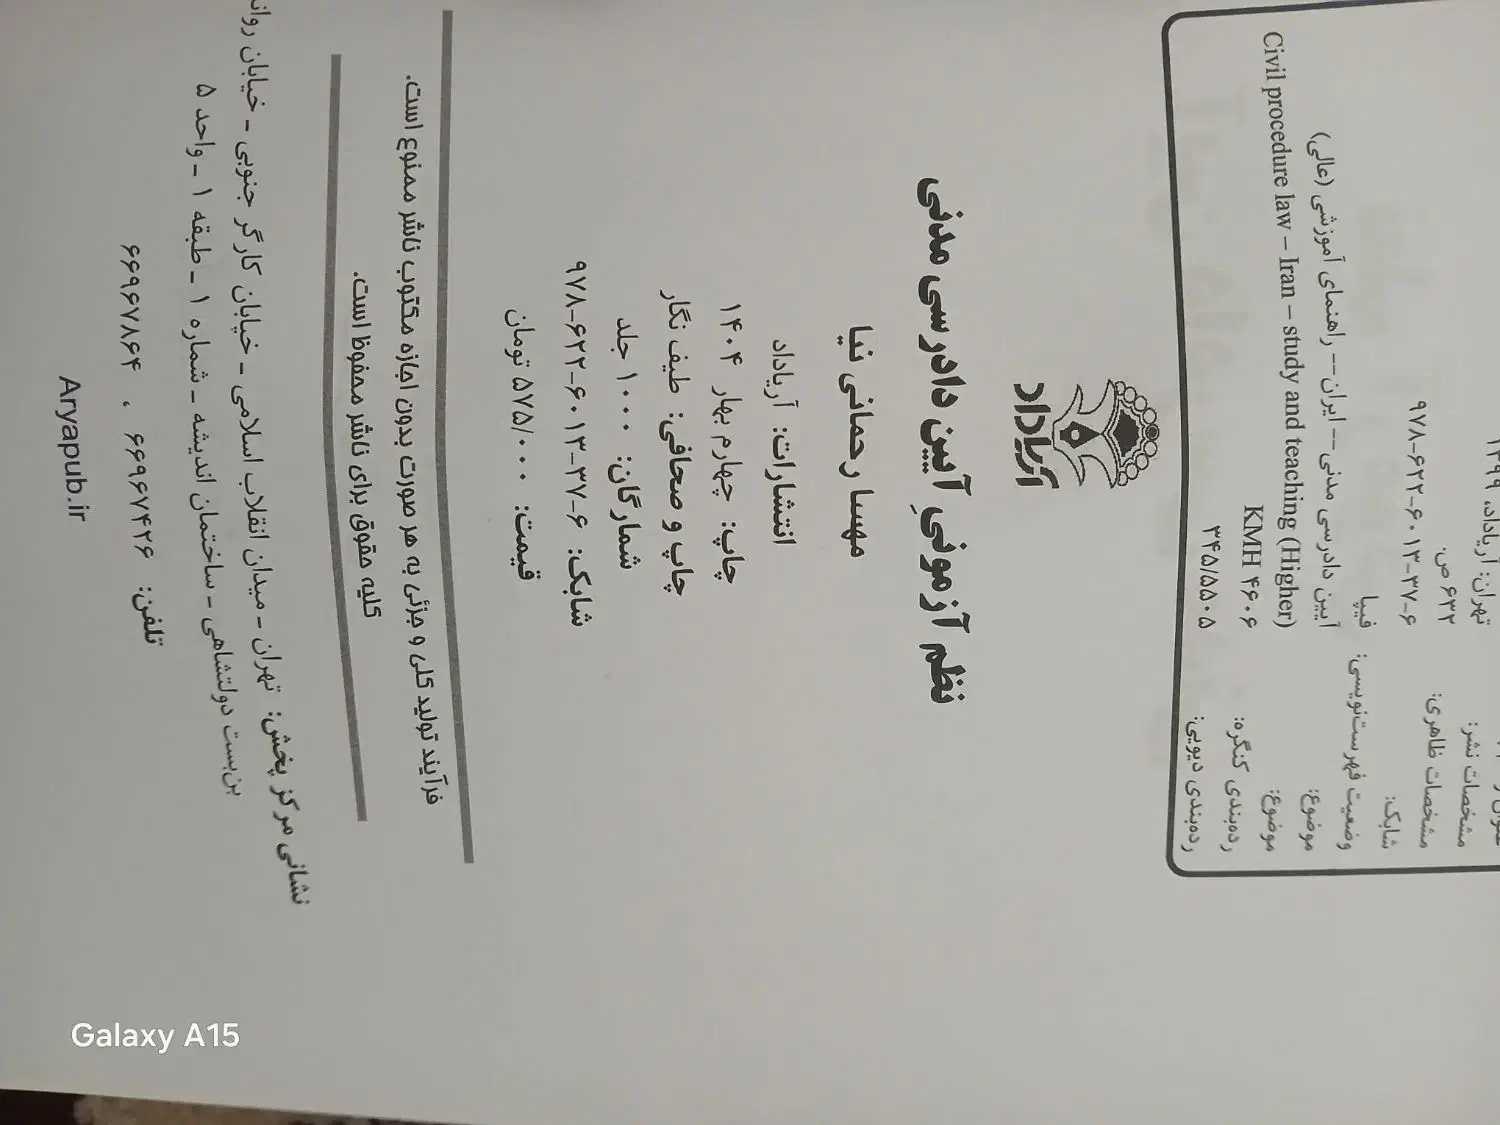 تهران: آریاداد، ۱۳۹۹
مشخصات نشر:
۶۳۲ ص.
مشخصات ظاهری:
۹۷۸-۶۲۲-۶۰۱۳-۳۷-۶
شابک:
وضعیت فهرست‌نویسی: فیپا
موضوع: آیین دادرسی مدنی -- ایران -- راهنمای آموزشی (عالی)
موضوع: Civil procedure law – Iran – study and teaching (Higher)
رده‌بندی کنگره: KMH ۴۶۰۶
رده‌بندی دیویی: ۳۴۵/۵۵۰۵
آریاداد
نظم آزمونیِ آیین دادرسی مدنی
مهسا رحمانی نیا
انتشارات: آریاداد
چاپ: چهارم بهار ۱۴۰۴
چاپ و صحافی: طیف نگار
شمارگان: ۱۰۰۰ جلد
شابک: ۹۷۸-۶۲۲-۶۰۱۳-۳۷-۶
قیمت: ۵۷۵/۰۰۰ تومان
فرآیند تولید کلی و جزئی به هر صورت بدون اجازه مکتوب ناشر ممنوع است.
کلیه حقوق برای ناشر محفوظ است.
نشانی مرکز پخش: تهران - میدان انقلاب اسلامی - خیابان کارگر جنوبی - خیابان
بن‌بست دولتشاهی - ساختمان اندیشه - شماره ۱ - طبقه ۱ - واحد ۵
تلفن: ۶۶۹۶۷۴۲۶ ، ۶۶۹۶۷۸۶۴
Aryapub.ir
Galaxy A15